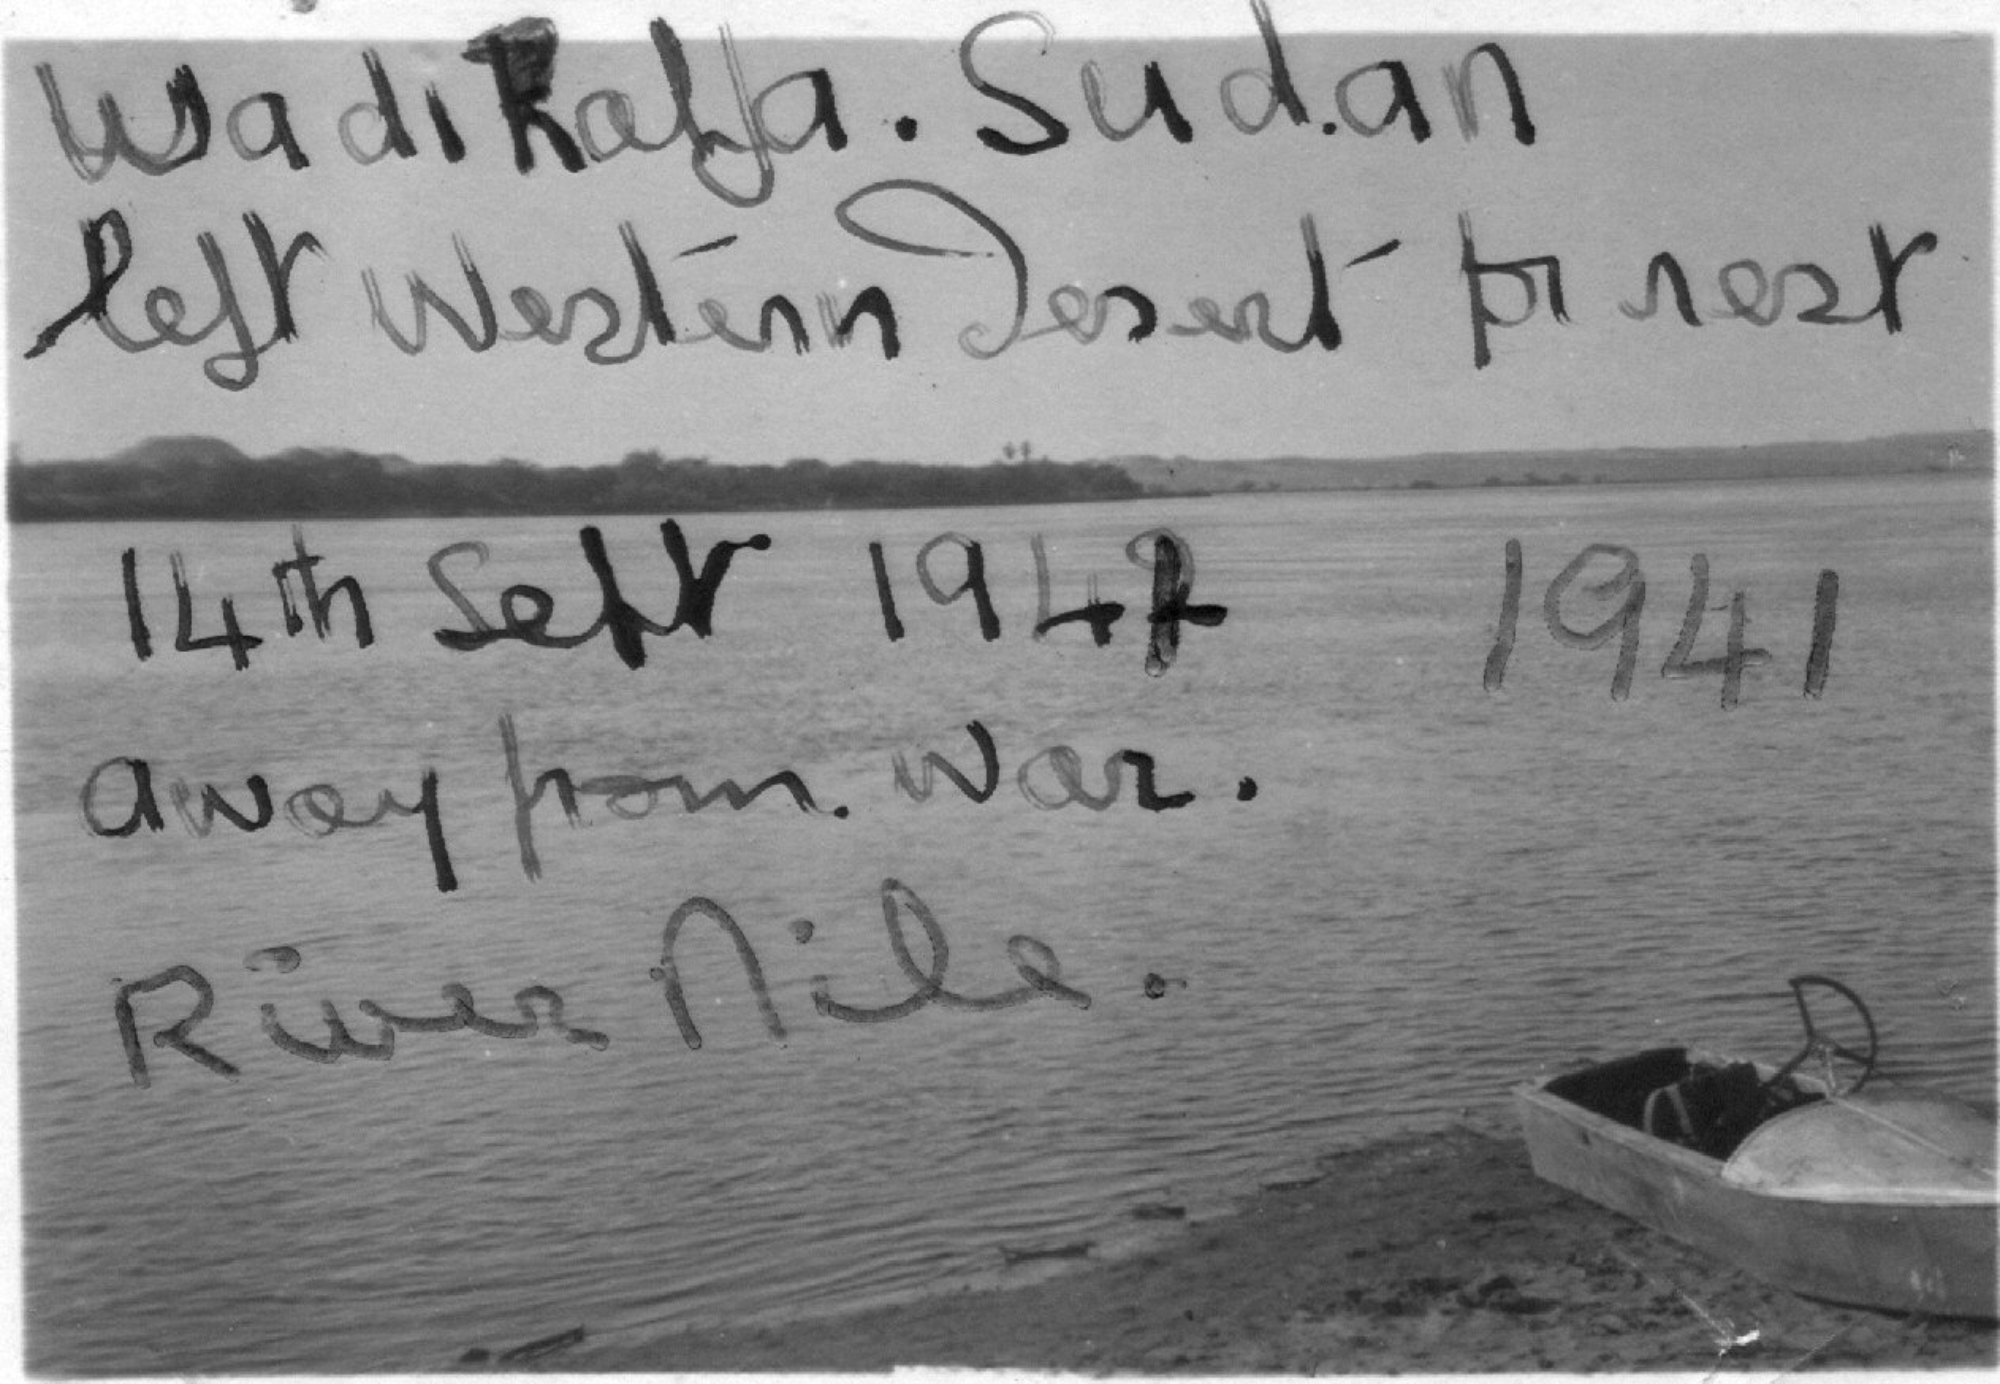 Wadi Halfa. Sudan
left Western Desert for rest
14th Sept 1941
away from war.
River Nile.